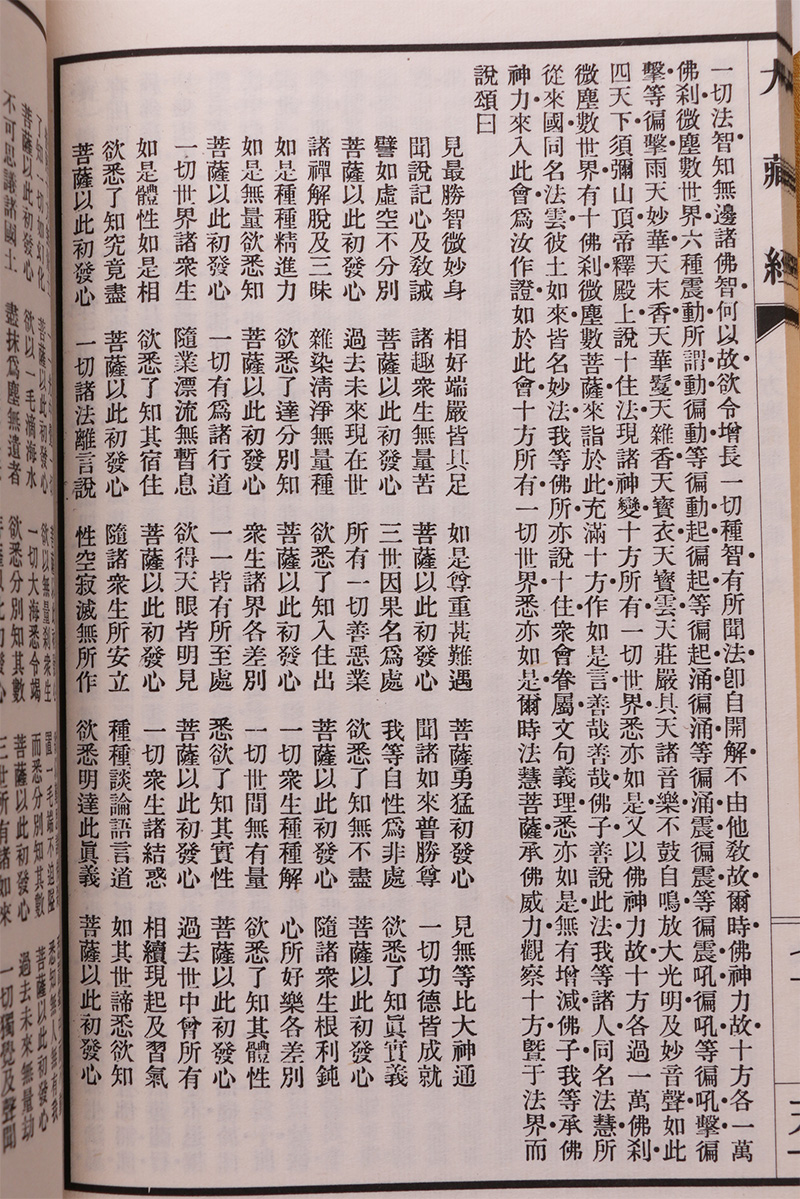 大藏經
一切法智知無邊諸佛智何以故欲令增長一切種智有所聞法卽自開解不由他敎故爾時佛神力故十方各一萬
佛刹微塵數世界六種震動所謂動徧動等徧動起徧起等徧起涌徧涌等徧涌震徧震等徧震吼徧吼等徧吼擊徧
擊等徧擊雨天妙華天末香天華鬘天雜香天寶衣天寶雲天莊嚴具天諸音樂不鼓自鳴放大光明及妙音聲如此
四天下須彌山頂帝釋殿上說十住法現諸神變十方所有一切世界悉亦如是又以佛神力故十方各過一萬佛刹
微塵數世界有十佛刹微塵數菩薩來詣於此充滿十方作如是言善哉善哉佛子善說此法我等諸人同名法慧所
從來國同名法雲彼土如來皆名妙法我等佛所亦說十住衆會眷屬文句義理悉亦如是無有增減佛子我等承佛
神力來入此會爲汝作證如於此會十方所有一切世界悉亦如是爾時法慧菩薩承佛威力觀察十方曁于法界而
說頌曰
見最勝智微妙身 相好端嚴皆具足 如是尊重甚難遇 菩薩勇猛初發心 見無等比大神通
聞說記心及敎誡 諸趣衆生無量苦 菩薩以此初發心 聞諸如來普勝尊 一切功德皆成就
譬如虛空不分別 菩薩以此初發心 三世因果名爲處 我等自性爲非處 欲悉了知眞實義
菩薩以此初發心 過去未來現在世 所有一切善惡業 欲悉了知無不盡 菩薩以此初發心
諸禪解脫及三昧 雜染淸淨無量種 欲悉了知入住出 菩薩以此初發心 隨諸衆生根利鈍
如是種種精進力 欲悉了達分別知 菩薩以此初發心 一切衆生種種解 心所好樂各差別
如是無量欲悉知 菩薩以此初發心 衆生諸界各差別 一切世間無有量 欲悉了知其體性
菩薩以此初發心 一切有爲諸行道 一一皆有所至處 悉欲了知其實性 菩薩以此初發心
一切世界諸衆生 隨業漂流無暫息 欲得天眼皆明見 菩薩以此初發心 過去世中曾所有
如是體性如是相 欲悉了知其宿住 菩薩以此初發心 一切衆生諸結惑 相續現起及習氣
欲悉了知究竟盡 菩薩以此初發心 隨諸衆生所安立 種種談論語言道 如其世諦悉欲知
菩薩以此初發心 一切諸法離言說 性空寂滅無所作 欲悉明達此眞義 菩薩以此初發心
菩薩以此初發心 欲以一毛滴海水 一切大海悉令竭 而悉分別知其數 菩薩以此初發心
不可思議諸國土 盡抹爲塵無遺者 欲悉分別知其數 菩薩以此初發心 過去未來無量劫
三世所有諸如來 一切獨覺及聲聞